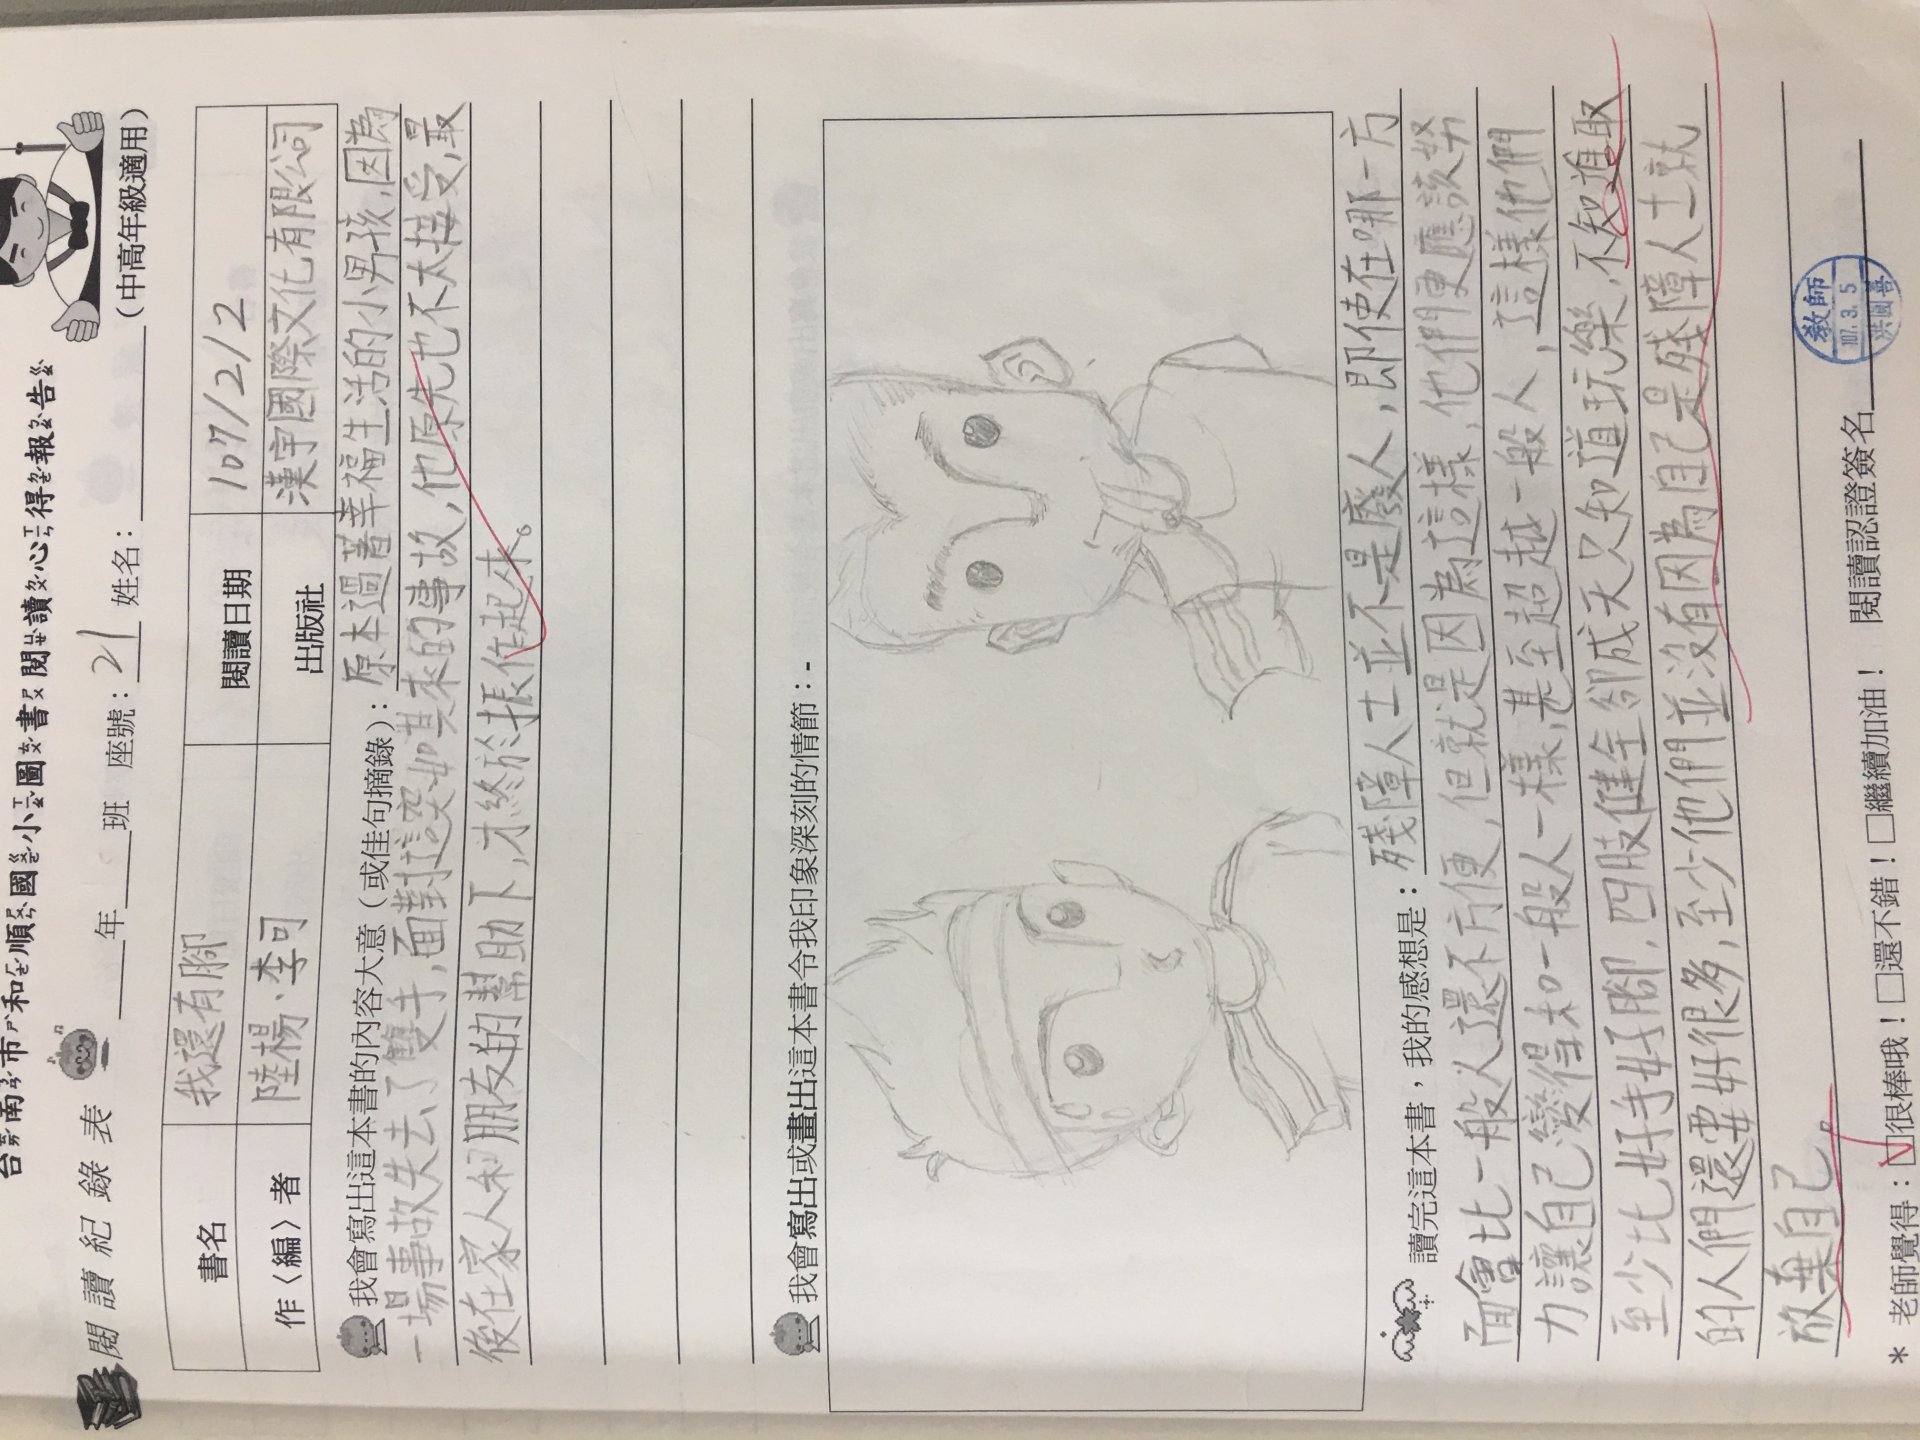 台南市和順國小圖書閱讀心得報告
閱讀紀錄表 ____年____班 座號：21 姓名：________（中高年級適用）
書名 我還有腳 閱讀日期 107/2/2
作〈編〉者 陸楊、李可 出版社 漢宇國際文化有限公司
我會寫出這本書的內容大意（或佳句摘錄）：原本過著幸福生活的小男孩，因為
一場事故失去了雙手，面對這突如其來的事故，他原先也不太接受，最
後在家人和朋友的幫助下，才終於振作起來。
我會寫出或畫出這本書令我印象深刻的情節：-
讀完這本書，我的感想是：殘障人士並不是廢人，即使在哪一方
面會比一般人還不方便，但就是因為這樣，他們更應該努
力讓自己變得和一般人一樣，甚至超越一般人，這樣他們
至少比好手好腳，四肢健全卻成天只知道玩樂，不知進取
的人們還要好很多，至少他們並沒有因為自己是殘障人士就
放棄自己。
* 老師覺得：☑很棒哦！□還不錯！□繼續加油！ 閱讀認證簽名________
教師
107. 3. 5
洪國善